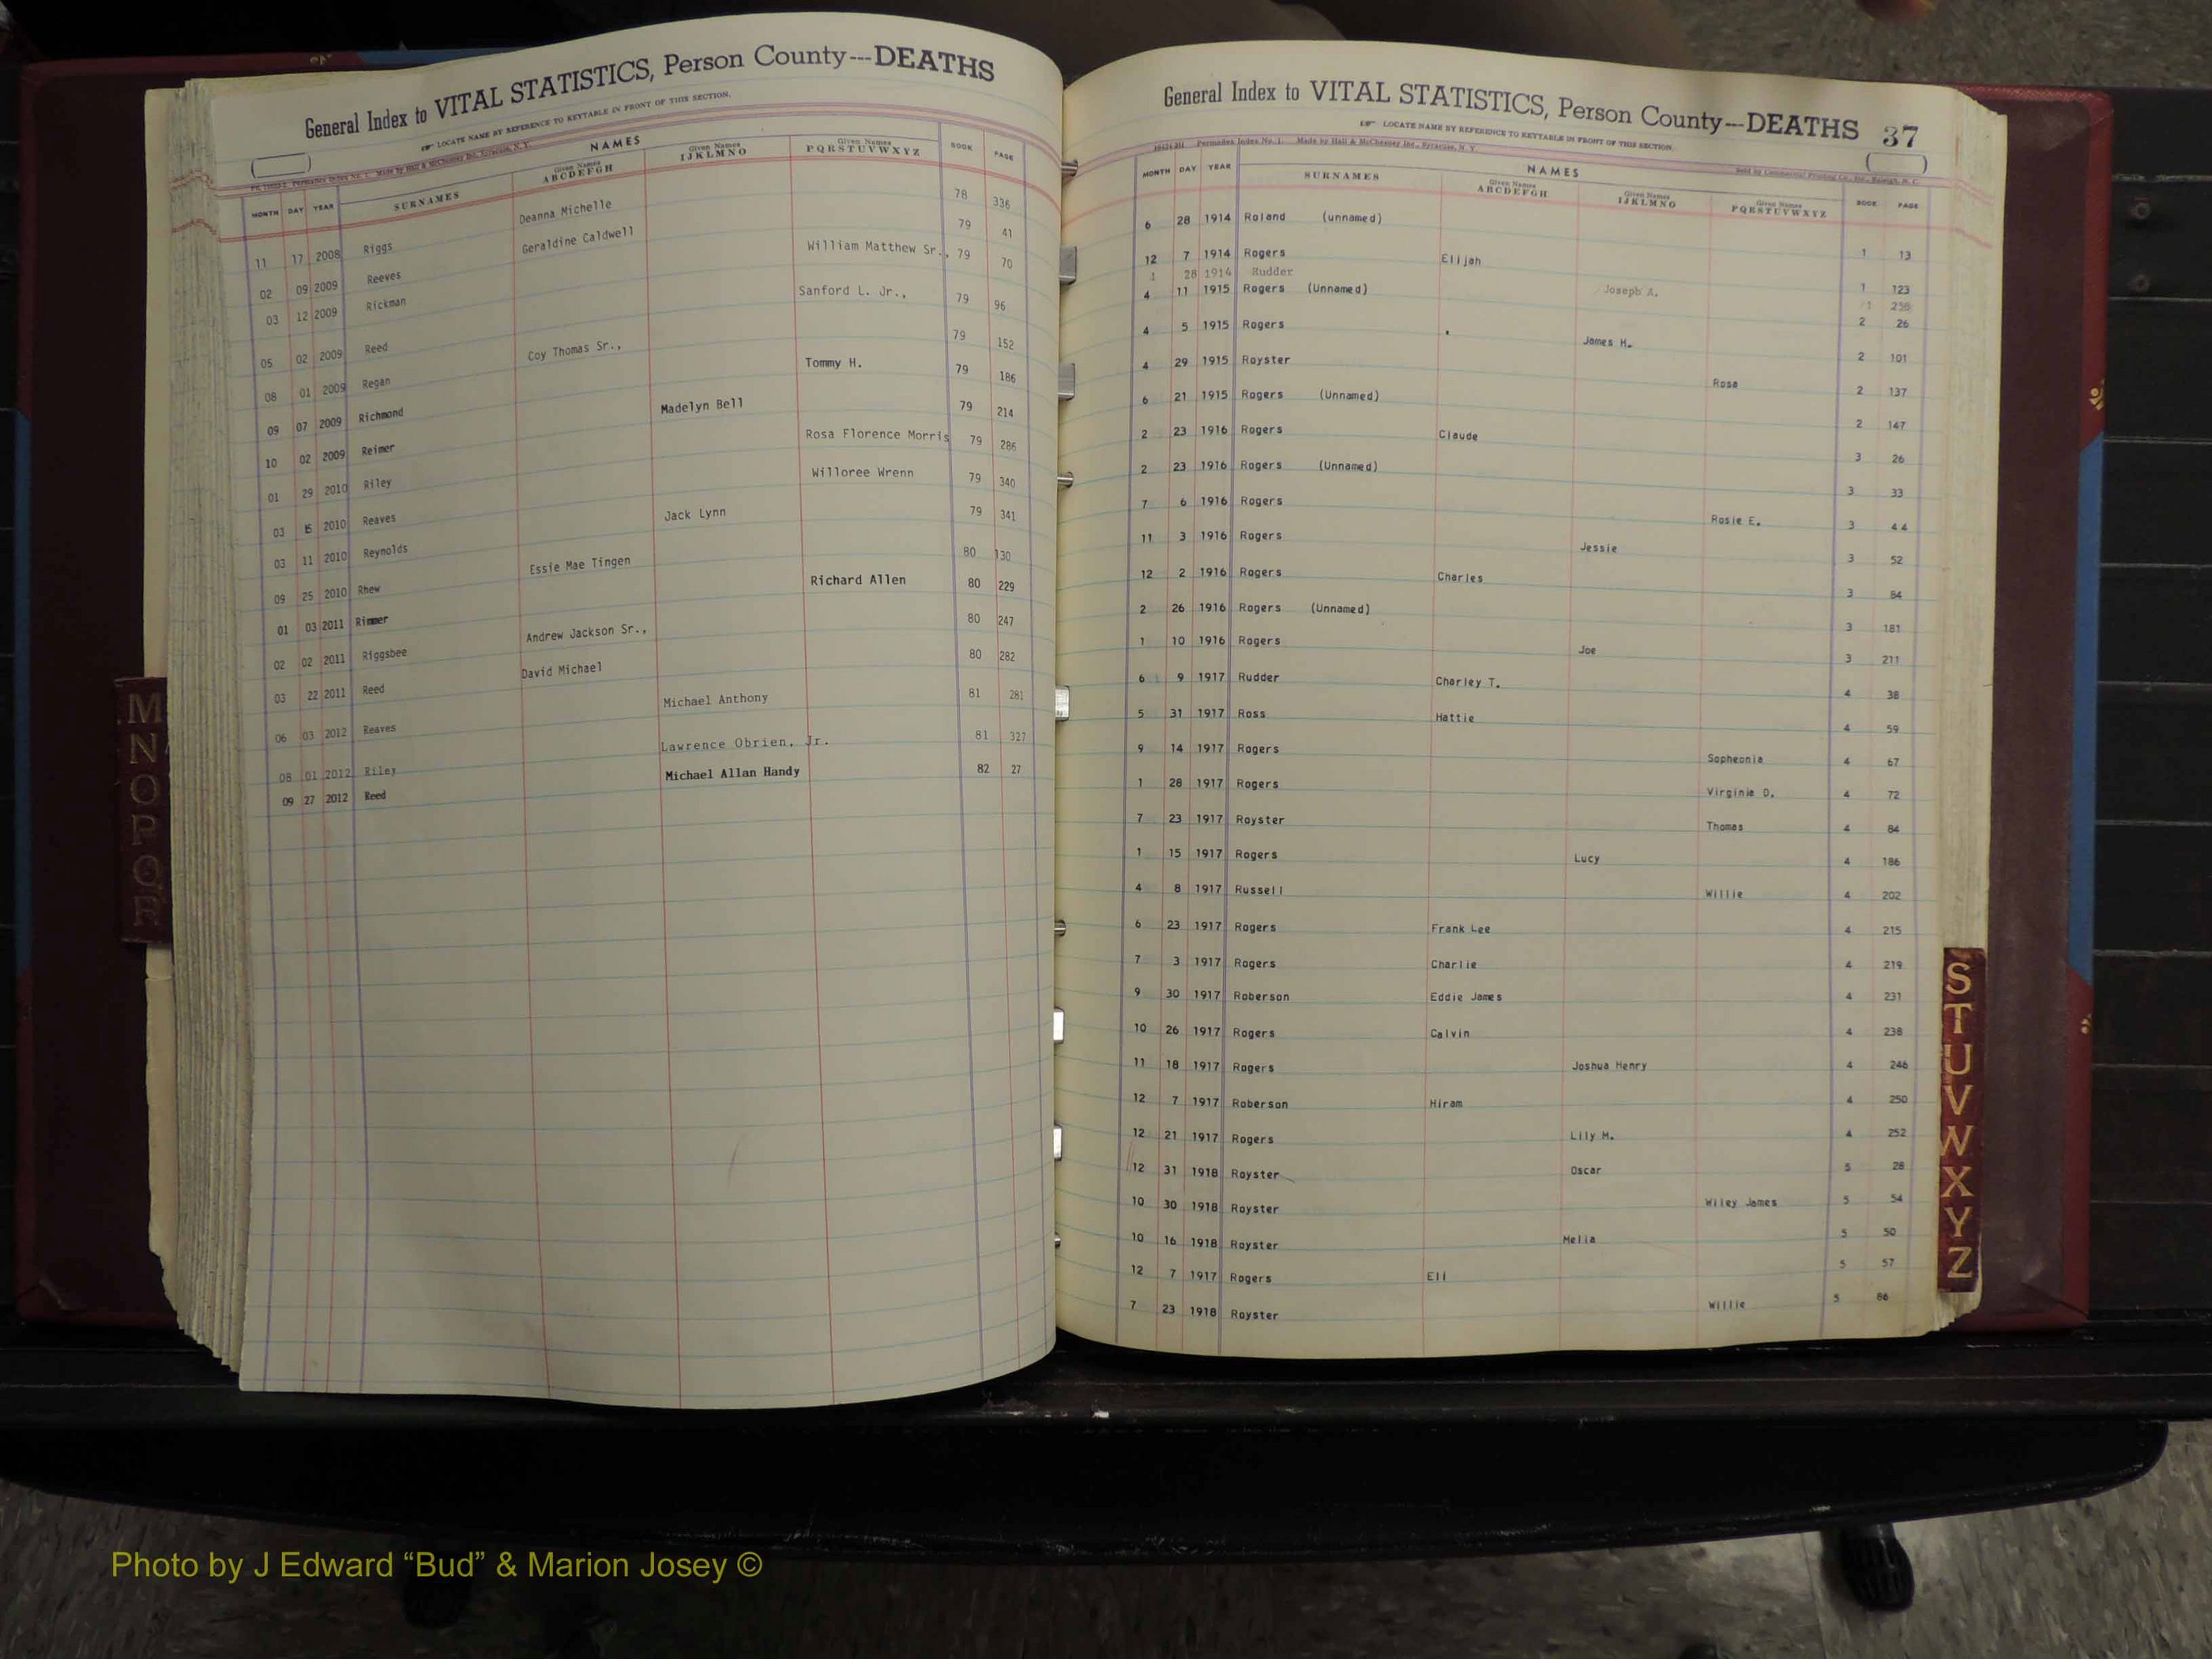 General Index to VITAL STATISTICS, Person County---DEATHS
LOCATE NAME BY REFERENCE TO KEYTABLE IN FRONT OF THIS SECTION.
NAMES
MONTH DAY YEAR SURNAMES Given Names ABCDEFGH Given Names IJKLMNO Given Names PQRSTUVWXYZ BOOK PAGE
11 17 2008 Riggs Deanna Michelle 78 336
02 09 2009 Reeves Geraldine Caldwell 79 41
03 12 2009 Rickman William Matthew Sr., 79 70
05 02 2009 Reed Sanford L. Jr., 79 96
08 01 2009 Regan Coy Thomas Sr., 79 152
09 07 2009 Richmond Tommy H. 79 186
10 02 2009 Reimer Madelyn Bell 79 214
01 29 2010 Riley Rosa Florence Morris 79 286
03 15 2010 Reaves Willoree Wrenn 79 340
03 11 2010 Reynolds Jack Lynn 79 341
09 25 2010 Rhew Essie Mae Tingen 80 130
01 03 2011 Rimmer Richard Allen 80 229
02 02 2011 Riggsbee Andrew Jackson Sr., 80 247
03 22 2011 Reed David Michael 80 282
06 03 2012 Reaves Michael Anthony 81 281
08 01 2012 Riley Lawrence Obrien, Jr. 81 327
09 27 2012 Reed Michael Allan Handy 82 27
M
N
O
P
Q
R
General Index to VITAL STATISTICS, Person County---DEATHS 37
LOCATE NAME BY REFERENCE TO KEYTABLE IN FRONT OF THIS SECTION.
Permadex Index No. 1. Made by Hall & McChesney Inc., Syracuse, N. Y.
Sold by Commercial Printing Co., Inc., Raleigh, N. C.
NAMES
MONTH DAY YEAR SURNAMES Given Names ABCDEFGH Given Names IJKLMNO Given Names PQRSTUVWXYZ BOOK PAGE
6 28 1914 Roland (unnamed) 1 13
12 7 1914 Rogers Elijah 1 123
1 28 1914 Rudder Joseph A. 1 258
4 11 1915 Rogers (Unnamed) 2 26
4 5 1915 Rogers James H. 2 101
4 29 1915 Royster Rose 2 137
6 21 1915 Rogers (Unnamed) 2 147
2 23 1916 Rogers Claude 3 26
2 23 1916 Rogers (Unnamed) 3 33
7 6 1916 Rogers Rosie E. 3 44
11 3 1916 Rogers Jessie 3 52
12 2 1916 Rogers Charles 3 84
2 26 1916 Rogers (Unnamed) 3 181
1 10 1916 Rogers Joe 3 211
6 9 1917 Rudder Charley T. 4 38
5 31 1917 Ross Hattie 4 59
9 14 1917 Rogers Sopheonia 4 67
1 28 1917 Rogers Virginia D. 4 72
7 23 1917 Royster Thomas 4 84
1 15 1917 Rogers Lucy 4 186
4 8 1917 Russell Willie 4 202
6 23 1917 Rogers Frank Lee 4 215
7 3 1917 Rogers Charlie 4 219
9 30 1917 Roberson Eddie James 4 231
10 26 1917 Rogers Calvin 4 238
11 18 1917 Rogers Joshua Henry 4 246
12 7 1917 Roberson Hiram 4 250
12 21 1917 Rogers Lily M. 4 252
12 31 1918 Royster Oscar 5 28
10 30 1918 Royster Wiley James 5 54
10 16 1918 Royster Melia 5 50
12 7 1917 Rogers Eli 5 57
7 23 1918 Royster Willie 5 86
S
T
U
V
W
X
Y
Z
Photo by J Edward “Bud” & Marion Josey ©